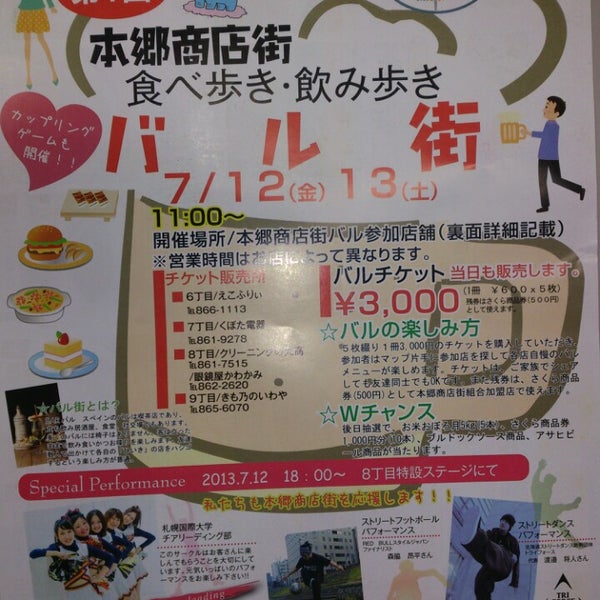 本郷商店街
食べ歩き・飲み歩き
バル街
カップリング
ゲームも
開催!!
7/12(金) 13(土)
11:00~
開催場所/本郷商店街バル参加店舗(裏面詳細記載)
※営業時間はお店によって異なります。
チケット販売所
6丁目/えこふりぃ
℡866-1113
7丁目/くぼた電器
℡861-9278
8丁目/クリーニングの
℡861-7515
/眼鏡屋かわかみ
℡862-2620
9丁目/きも乃のいわや
℡865-6070
バルチケット 当日も販売します。
¥3,000
(1冊 ¥600x5枚)
残券はさくら商品券(500円)
として使えます。
☆バルの楽しみ方
5枚綴り1冊3,000円のチケットを購入していただき、
参加者はマップ片手に参加店を探して各店自慢のバル
メニューが楽しめます。チケットは、ご家族でシェア
して友達同士でもOKです。また残券は、さくら商品
券(500円)として本郷商店街組合加盟店で使えます。
☆Wチャンス
後日抽選で、お米おぼろ月5kg(5本)、さくら商品券
1,000円分(10本)、ブルドックソース商品、アサヒビ
ール商品が当たります。
☆バル街とは?
Special Performance 2013.7.12 18:00~ 8丁目特設ステージにて
私たちも本郷商店街を応援します!!
札幌国際大学
チアリーディング部
このサークルはお客さんに楽し
んでもらうことを大切にして
います。元気いっぱいのパフォ
ーマンスをお楽しみ下さい!!
ストリートフットボール
パフォーマンス
RED BULLスタイルジャパン
ファイナリスト
森脇 昂平さん
ストリートダンス
パフォーマンス
代表 渡邉 将人さん
TRI